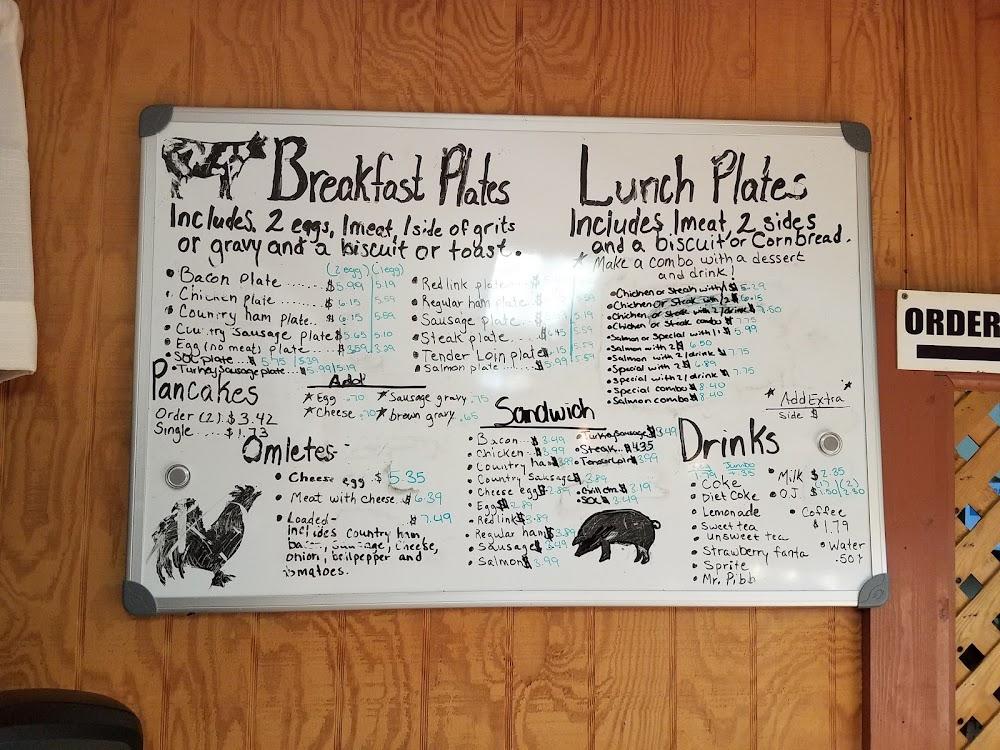 Breakfast Plates
Includes 2 eggs, 1 meat, 1 side of grits
or gravy and a biscuit or toast.
(2 egg) (1 egg)
• Bacon plate ...... $5.99 5.19
• Chicken plate ...... $6.15 5.59
• Country ham plate.. $6.15 5.59
• Country Sausage plate $5.65 5.10
• Egg (no meat) plate... $3.59 3.29
• SOL plate... $5.75
• Turkey Sausage plate... $5.99 5.19
• Red link plate
• Regular ham plate
• Sausage plate
• Steak plate
• Tender Loin plate
• Salmon plate
Pancakes
Order (2). $3.42
Single.... $1.73
Add
* Egg .70 * Sausage gravy .75
* Cheese .70 * brown gravy .65
Omletes-
• Cheese egg. $5.35
• Meat with cheese. $6.39
• Loaded- $7.49
includes country ham
cheese,
onion, bellpepper and
tomatoes.
Sandwich
• Bacon... $3.49
• Chicken $3.99
• Country ham $3.99
• Country Sausage $3.89
• Cheese egg $2.89
• Egg $2.89
• Red link $3.89
• Regular ham $3.89
• Sausage $3.49
• Salmon $3.99
• Turkey Sausage $3.49
• Steak... $4.35
• Tender Loin $3.99
• Grill cm $3.19
• SOL $3.49
Lunch Plates
Includes 1 meat, 2 sides
and a biscuit or Cornbread.
* Make a combo with a dessert
and drink!
• Chicken or Steak with 1 $5.29
• Chicken or Steak with 2 $6.15
• Chicken or Steak with 2/drink $7.50
• Chicken or Steak combo $7.75
• Salmon or Special with 1 $5.99
• Salmon with 2 $6.50
• Salmon with 2/drink $7.75
• Special with 2 $6.85
• Special with 2/drink $7.75
• Special combo $8.40
• Salmon combo $8.40
* Add Extra *
Side $
Drinks
Jumbo
• Coke
• Diet Coke
• Lemonade
• Sweet tea
• Unsweet tea
• Strawberry fanta
• Sprite
• Mr. Pibb
• Milk $2.35
• O.J.
• Coffee
$1.79
• Water
.50¢
ORDER